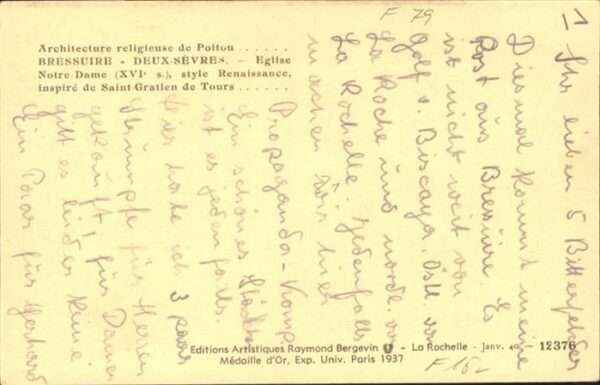 Architecture religieuse de Poitou . . . . .
BRESSUIRE - DEUX-SÈVRES. - Eglise
Notre-Dame (XVIᵉ s.), style Renaissance,
inspiré de Saint-Gratien de Tours . . . . . .
F 79
1 Ihr lieben 5 Bitterfelder
Diesmal kommt meine
Post aus Bressuire. Es
ist nicht weit von
Golf v. Biscaya. Östl. von
La Roche und nordö. v.
La Rochelle. Jedenfalls
machen wir hier
Propaganda-Komp
Ein schönes
ist es jedenfalls.
Hier habe ich 3 paar
Strümpfe für Herren
gekauft, für Damen
gibt es leider keine.
Ein Paar für Gerhard
Editions Artistiques Raymond Bergevin - La Rochelle - Janv. 40 12376
Médaille d'Or, Exp. Univ. Paris 1937
F 15.-